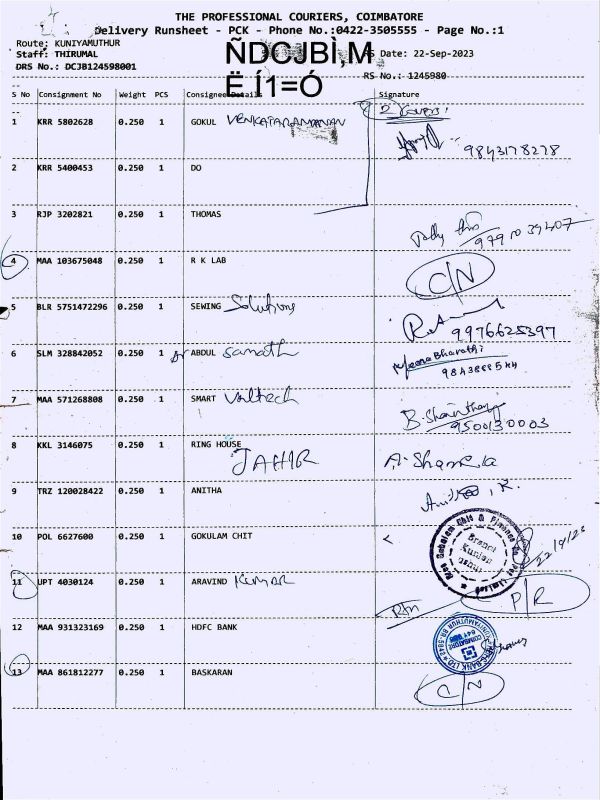 THE PROFESSIONAL COURIERS, COIMBATORE
Delivery Runsheet - PCK - Phone No.:0422-3505555 - Page No.:1
Route: KUNIYAMUTHUR
Staff: THIRUMAL
DRS No.: DCJB124598001
ÑDCJBÌ,M
Ë Í1=Ó
RS Date: 22-Sep-2023
RS No.: 1245980
S No Consignment No Weight PCS Consignee Details Signature
1 KRR 5802628 0.250 1 GOKUL VENKATARAMANAN 2 9843178278
2 KRR 5400453 0.250 1 DO
3 RJP 3202821 0.250 1 THOMAS
4 MAA 103675048 0.250 1 R K LAB C/N
5 BLR 5751472296 0.250 1 SEWING Solutions 9976625397
6 SLM 328842052 0.250 1 ABDUL Samath Meena Bharathi
7 MAA 571268808 0.250 1 SMART Valtech 9500130003
8 KKL 3146075 0.250 1 RING HOUSE JAHIR A. Shamila
9 TRZ 120028422 0.250 1 ANITHA
10 POL 6627600 0.250 1 GOKULAM CHIT
11 UPT 4030124 0.250 1 ARAVIND KUMAR Rtn P/R
12 MAA 931323169 0.250 1 HDFC BANK
13 MAA 861812277 0.250 1 BASKARAN C/N